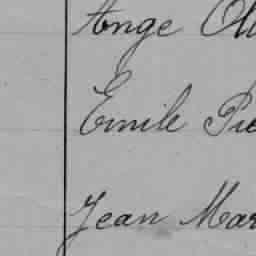 Ange Oli
Emile Pie
Jean Mar